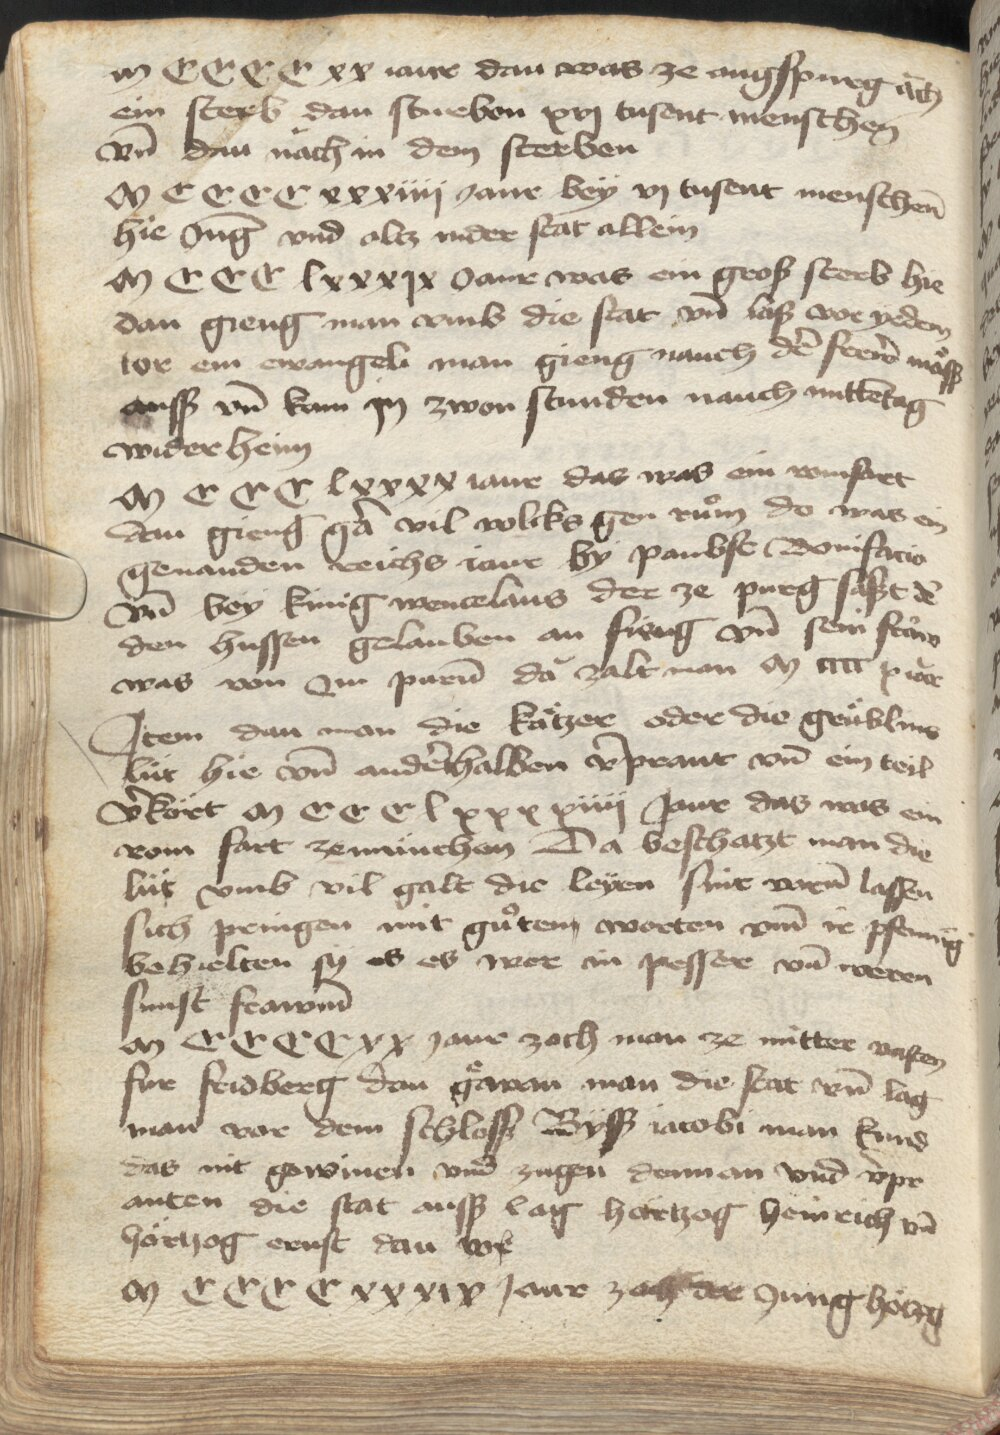 m c c c c xx iaur dau was ze augspurg äch
ein sterb dau sturbon xvj tusent menschen
vn̄ dau näch in dem sterben
M c c c c xxxiiij jaur beÿ vj tusent menschen̄
hie Jung vnd altz in der stat allein
M c c c lxxxix Jaur was ein groß sterb hie
dau gieng man vmb die stat vn̄ laß vor yedem
tor ein ewangeli man gieng nauch der
auss vn̄ kam in zwon stunden nauch mittētag
wider heim
M c c c lxxxx iaur das was ein romfart
dau gieng gar vil volcks gen rům do was ein
genanden reichs iaur bÿ paubst Bonifacio
Vn̄ bey kinig wencelaus der ze purg saßt
den hussen gelauben an fieng vn̄ sein
was von da zalt man M cccc
Item dau man die kätzer oder die grüblins
lüt hie vn̄ anderhalben v̄prant vn̄ ein teil
v̄kört M c c c l xxx xiiij Jaur das was ein
rom fart ze münchen Da beschatzt man die
lüt vmb vil gält die leÿen sint lassen
sich pringen mit gůtem worten vmb ir pfennig
behielten sÿ es wer in pesser vn̄ weren
sunst
M c c c c xx jaur zoch man ze mitter vasten
fur fridberg dau gewan man die stat vn̄ lag
man vor dem schloss Byss iacobi man kund
das nit gewinen vnd zugen dennan vnd v̄pr
anten die stat auss lag hörtzog heinrich vn̄
hörtzog ernst dau vor
M c c c c xxxix Jaur zoch der Jung hörtzg